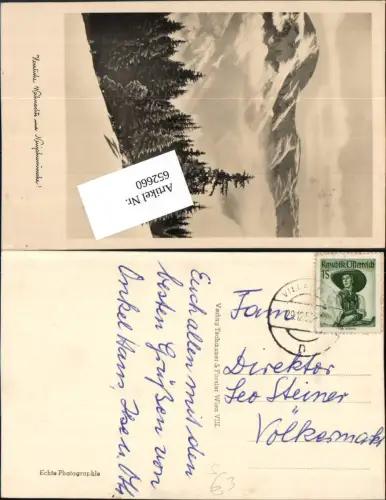 Herzliche Weihnachts- und Neujahrswünsche!
Artikel Nr.
652660
Euch allen mit den
besten Grüßen von
Onkel Hans,
Echte Photographie
Verlag Tschauner & Förster Wien VIII.
Republik Österreich
1S
VILLA
Fam.
Direktor
Leo Steiner
Völkermarkt
63